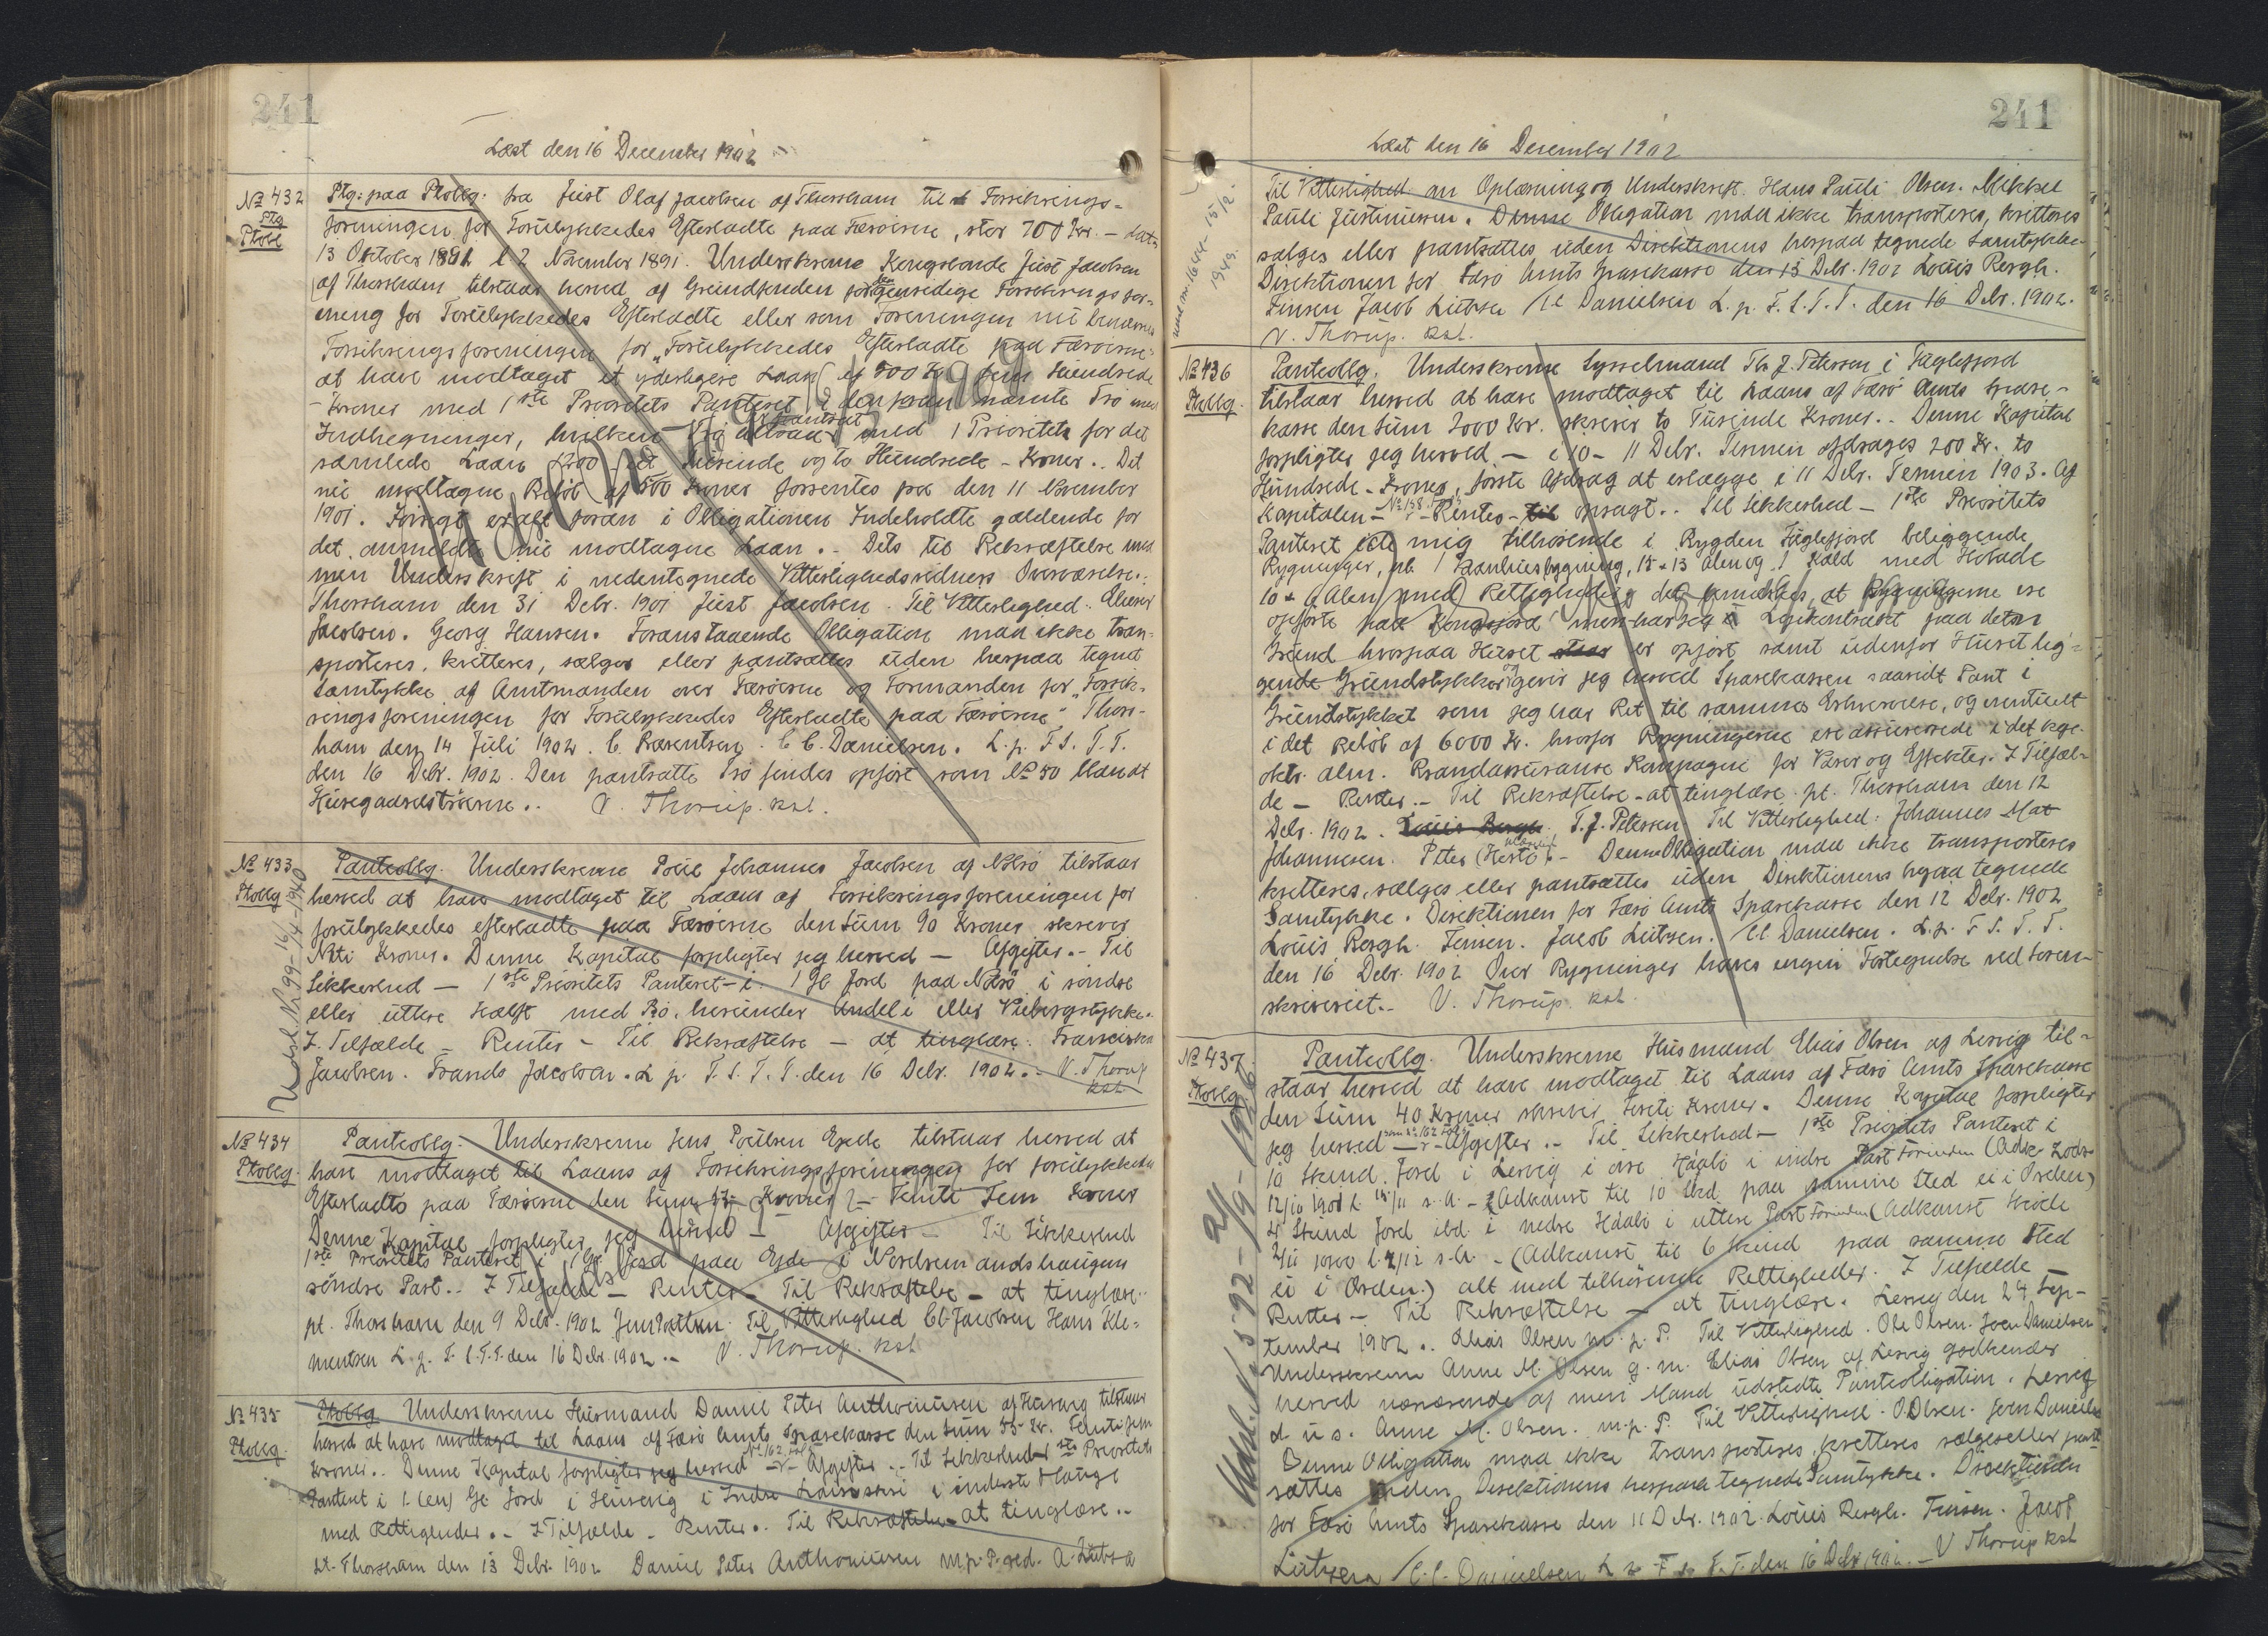 241
Læst den 16 December 1902
№ 432
Ptg
Ptobl
Ptg: paa Ptoblg. fra Just Olaf Jacobsen af Thorshavn til Forsikrings-
foreningen for Forulykkedes Efterladte paa Færøerne, stor 700 Kr. — dat.
13 Oktober 1891 l 2 November 1891. Underskrevne Kongsbonde Just Jacobsen
af Thorshavn tilstaar herved af Grundfonden for den gensidige Forsikringsfor-
ening for Forulykkedes Efterladte eller som Foreningen nu benævnes
Forsikringsforeningen for "Forulykkedes Efterladte paa Færøerne"
at have modtaget et yderligere Laan af 500 Kr Hundrede
Kroner med 1ste Prioritets Panteret i den foran nævnte Trø med
Indhegninger, hvilken Trø altsaa er pantsat med 1 Prioritets for det
samlede Laan 1200 et Tusinde og to Hundrede - Kroner.. Det
nu modtagne Beløb af 500 Kroner forrentes fra den 11 November
1901. Forøvrigt er alt foran i Obligationen Indeholdte gældende for
det anmeldte nu modtagne Laan.. Dets til Bekræftelse med
min Underskrift i nedentegnede Vitterlighedsvidners Overværelse..
Thorshavn den 31 Debr. 1901 Just Jacobsen. Til Vitterlighed.
Jacobsen. Georg Hansen. Foranstaaende Obligation maa ikke tran-
sporteres, kvitteres, sælges eller pantsættes uden herpaa tegnet
Samtykke af Amtmanden over Færøerne og Formanden for "Forsik-
ringsforeningen for Forulykkedes Efterladte paa Færøerne". Thors-
havn den 14 Juli 1902. C. Bærentsen. C C. Danielsen. L. p. F. S. T. T.
den 16 Debr. 1902. Den pantsatte Trø findes opført som № 50 blandt
Husegaardstrøerne.. V. Thorup. kst.
№ 433
Ptoblg
Udsl. Nr. 99 - 16/4 - 1940
Panteoblg. Underskrevne Poul Johannes Jacobsen af Nolsø tilstaar
herved at have modtaget til Laans af Forsikringsforeningen for
forulykkedes efterladte paa Færøerne den Sum 90 Kroner skriver
Niti Kroner. Denne Kapital forpligter jeg herved — Afgifter.. Til
Sikkerhed — 1ste Prioritets Panteret - i 1 Gl Jord paa Nolsø i søndre
eller uttere Hælft med Bø, herunder Andel i eller Viebergstykke.
I Tilfælde — Renter — Til Bekræftelse — at tinglæse. Franciska
Jacobsen. Frands Jacobsen. L p. F. S. T. T. den 16 Debr. 1902.. V. Thorup
kst
№ 434
Ptoblg.
Panteoblg. Underskrevne Jens Poulsen Ejede tilstaar herved at
have modtaget til Laans af Forsikringsforeningen for forulykkedes
Efterladte paa Færøerne den Sum Kroner — Fem Kroner
Denne Kapital forpligter jeg herved — Afgifter — Til Sikkerhed
1ste Prioritets Panteret i 1 Gl Jord paa Ejde i Nordremandshaugen
søndre Part.. I Tilfælde — Renter — Til Bekræftelse — at tinglæse..
pt. Thorshavn den 9 Debr. 1902 Jens Poulsen. Til Vitterlighed Jacobsen Hans Kle-
mentsen L. p. F. S. T. T. den 16 Debr. 1902.. V. Thorup. kst
№ 435
Ptoblg.
Ptoblg Underskrevne Husmand Daniel Peter Anthoniussen af Husevig tilstaar
herved at have modtaget til Laans af Færø Amts Sparekasse den Sum Kr.
Kroner.. Denne Kapital forpligter jeg herved № 162 - v - Afgifter.. Til Sikkerhed 1ste Prioritets
Panteret i 1. (en) Gl Jord i Husevig i Indre i inderste Hauge
med Rettigheder.. I Tilfælde — Renter.. Til Bekræftelse — at tinglæse..
pt. Thorshavn den 13 Debr. 1902 Daniel Peter Anthoniussen m.p.P. ved. A. Lütze
241
Læst den 16 December 1902
Til Vitterlighed om Oplæsning og Underskrift. Hans Pauli Olsen. Mikkel
Pauli Justinussen. Denne Obligation maa ikke transporteres, kvitteres
sælges eller pantsættes uden Direktionens herpaa tegnede Samtykke.
Direktionen for Færø Amts Sparekasse den 13 Debr. 1902 Louis Bergh.
Finsen Jacob Lützen C.C Danielsen L. p. F. S. T. T. den 16 Debr. 1902.
V. Thorup. kst.
№ 436
Ptoblg.
Panteoblg. Underskrevne Sysselmand Th. J. Petersen i Fuglefjord
tilstaar herved at have modtaget til Laans af Færø Amts Spare-
kasse den Sum 2000 Kr. skriver to Tusinde Kroner.. Denne Kapital
forpligter jeg herved — i 10 - 11 Debr. Termin afdrages 200 Kr. to
Hundrede - Kroner, første Afdrag at erlægge i 11 Debr. Termin 1903. Af
Kapitalen - № 158 - v - Renter - opsagt.. Til Sikkerhed — 1ste Prioritets
Panteret i de mig tilhørende i Bygden Fuglefjord beliggende
Bygninger, nl. 1 Vaanhusbygning, 15 x 13 Alen og 1 Kjæld med Hoved
10 x 9 Alen med Rettigheder, det anmeldes, at Bygningerne ere
opførte paa Kongsjord men har jeg Lejekontrakt paa den
Grund hvorpaa Huset er opført samt udenfor Huset lig-
gende Grundstykker og giver jeg herved Sparekassen saavidt Pant i
Grundstykket som jeg har Ret til sammes Erhvervelse, og eventuelt
i det Beløb af 6000 Kr. hvorfor Bygningerne ere assurerede i det kgl.
oktr. alm. Brandassurance Kompagni for Varer og Effekter. I Tilfæl-
de — Renter.. Til Bekræftelse - at tinglæse. pt. Thorshavn den 12
Debr. 1902. T. J. Petersen Til Vitterlighed: Johannes Mat
Johannesen. Peter (Hestø).- Denne Obligation maa ikke transporteres
kvitteres, sælges eller pantsættes uden Direktionens herpaa tegnede
Samtykke. Direktionen for Færø Amts Sparekasse den 12 Debr. 1902
Louis Bergh. Finsen. Jacob Lützen. C.C Danielsen. L. p. F. S. T. T.
den 16 Debr. 1902 Over Bygninger haves ingen Fortegnelse ved Soren-
skriveriet.. V. Thorup. kst.
№ 437
Ptoblg.
Panteoblg. Underskrevne Husmand Elias Olsen af Lervig til-
staar herved at have modtaget til Laans af Færø Amts Sparekasse
den Sum 40 Kroner skriver Firti Kroner. Denne Kapital forpligter
jeg herved som № 162 - v - Afgifter.. Til Sikkerhed — 1ste Prioritets Panteret i
10 Skind. Jord i Lervig i øvre Haalv i indre Part Forinden (Adk. Lods-
12/10 1901 l. 15/11 s. A. - (Adkomst til 10 Skd. paa samme Sted ei i Orden)
4 Skind Jord ibd. i nedre Haalv i uttere Part Forinden (Adkomst Skjøde
2/11 1900 l. 4/12 s. A. - (Adkomst til 6 Skind paa samme Sted
ei i Orden.) alt med tilhørende Rettigheder. I Tilfælde —
Renter — Til Bekræftelse — at tinglæse. Lervig den 24 Sep-
tember 1902.. Elias Olsen m. p. P. Til Vitterlighed. Ole Olsen. Joen Danielsen
Underskrevne Anne M. Olsen g. m. Elias Olsen af Lervig godkender
herved nærværende af min Mand udstedte Panteobligation. Lervig
d. u s. Anne M. Olsen. m.p. P. Til Vitterlighed. O. Olsen. Joen Danielsen
Denne Obligation maa ikke transporteres, kvitteres sælges eller pant
sættes uden Direktionens herpaa tegnede Samtykke. Direktionen
for Færø Amts Sparekasse den 11 Debr. 1902. Louis Bergh. Finsen. Jacob
Lützen C.C. Danielsen L p. F. S. T. T. den 16 Debr. 1902.. V Thorup kst